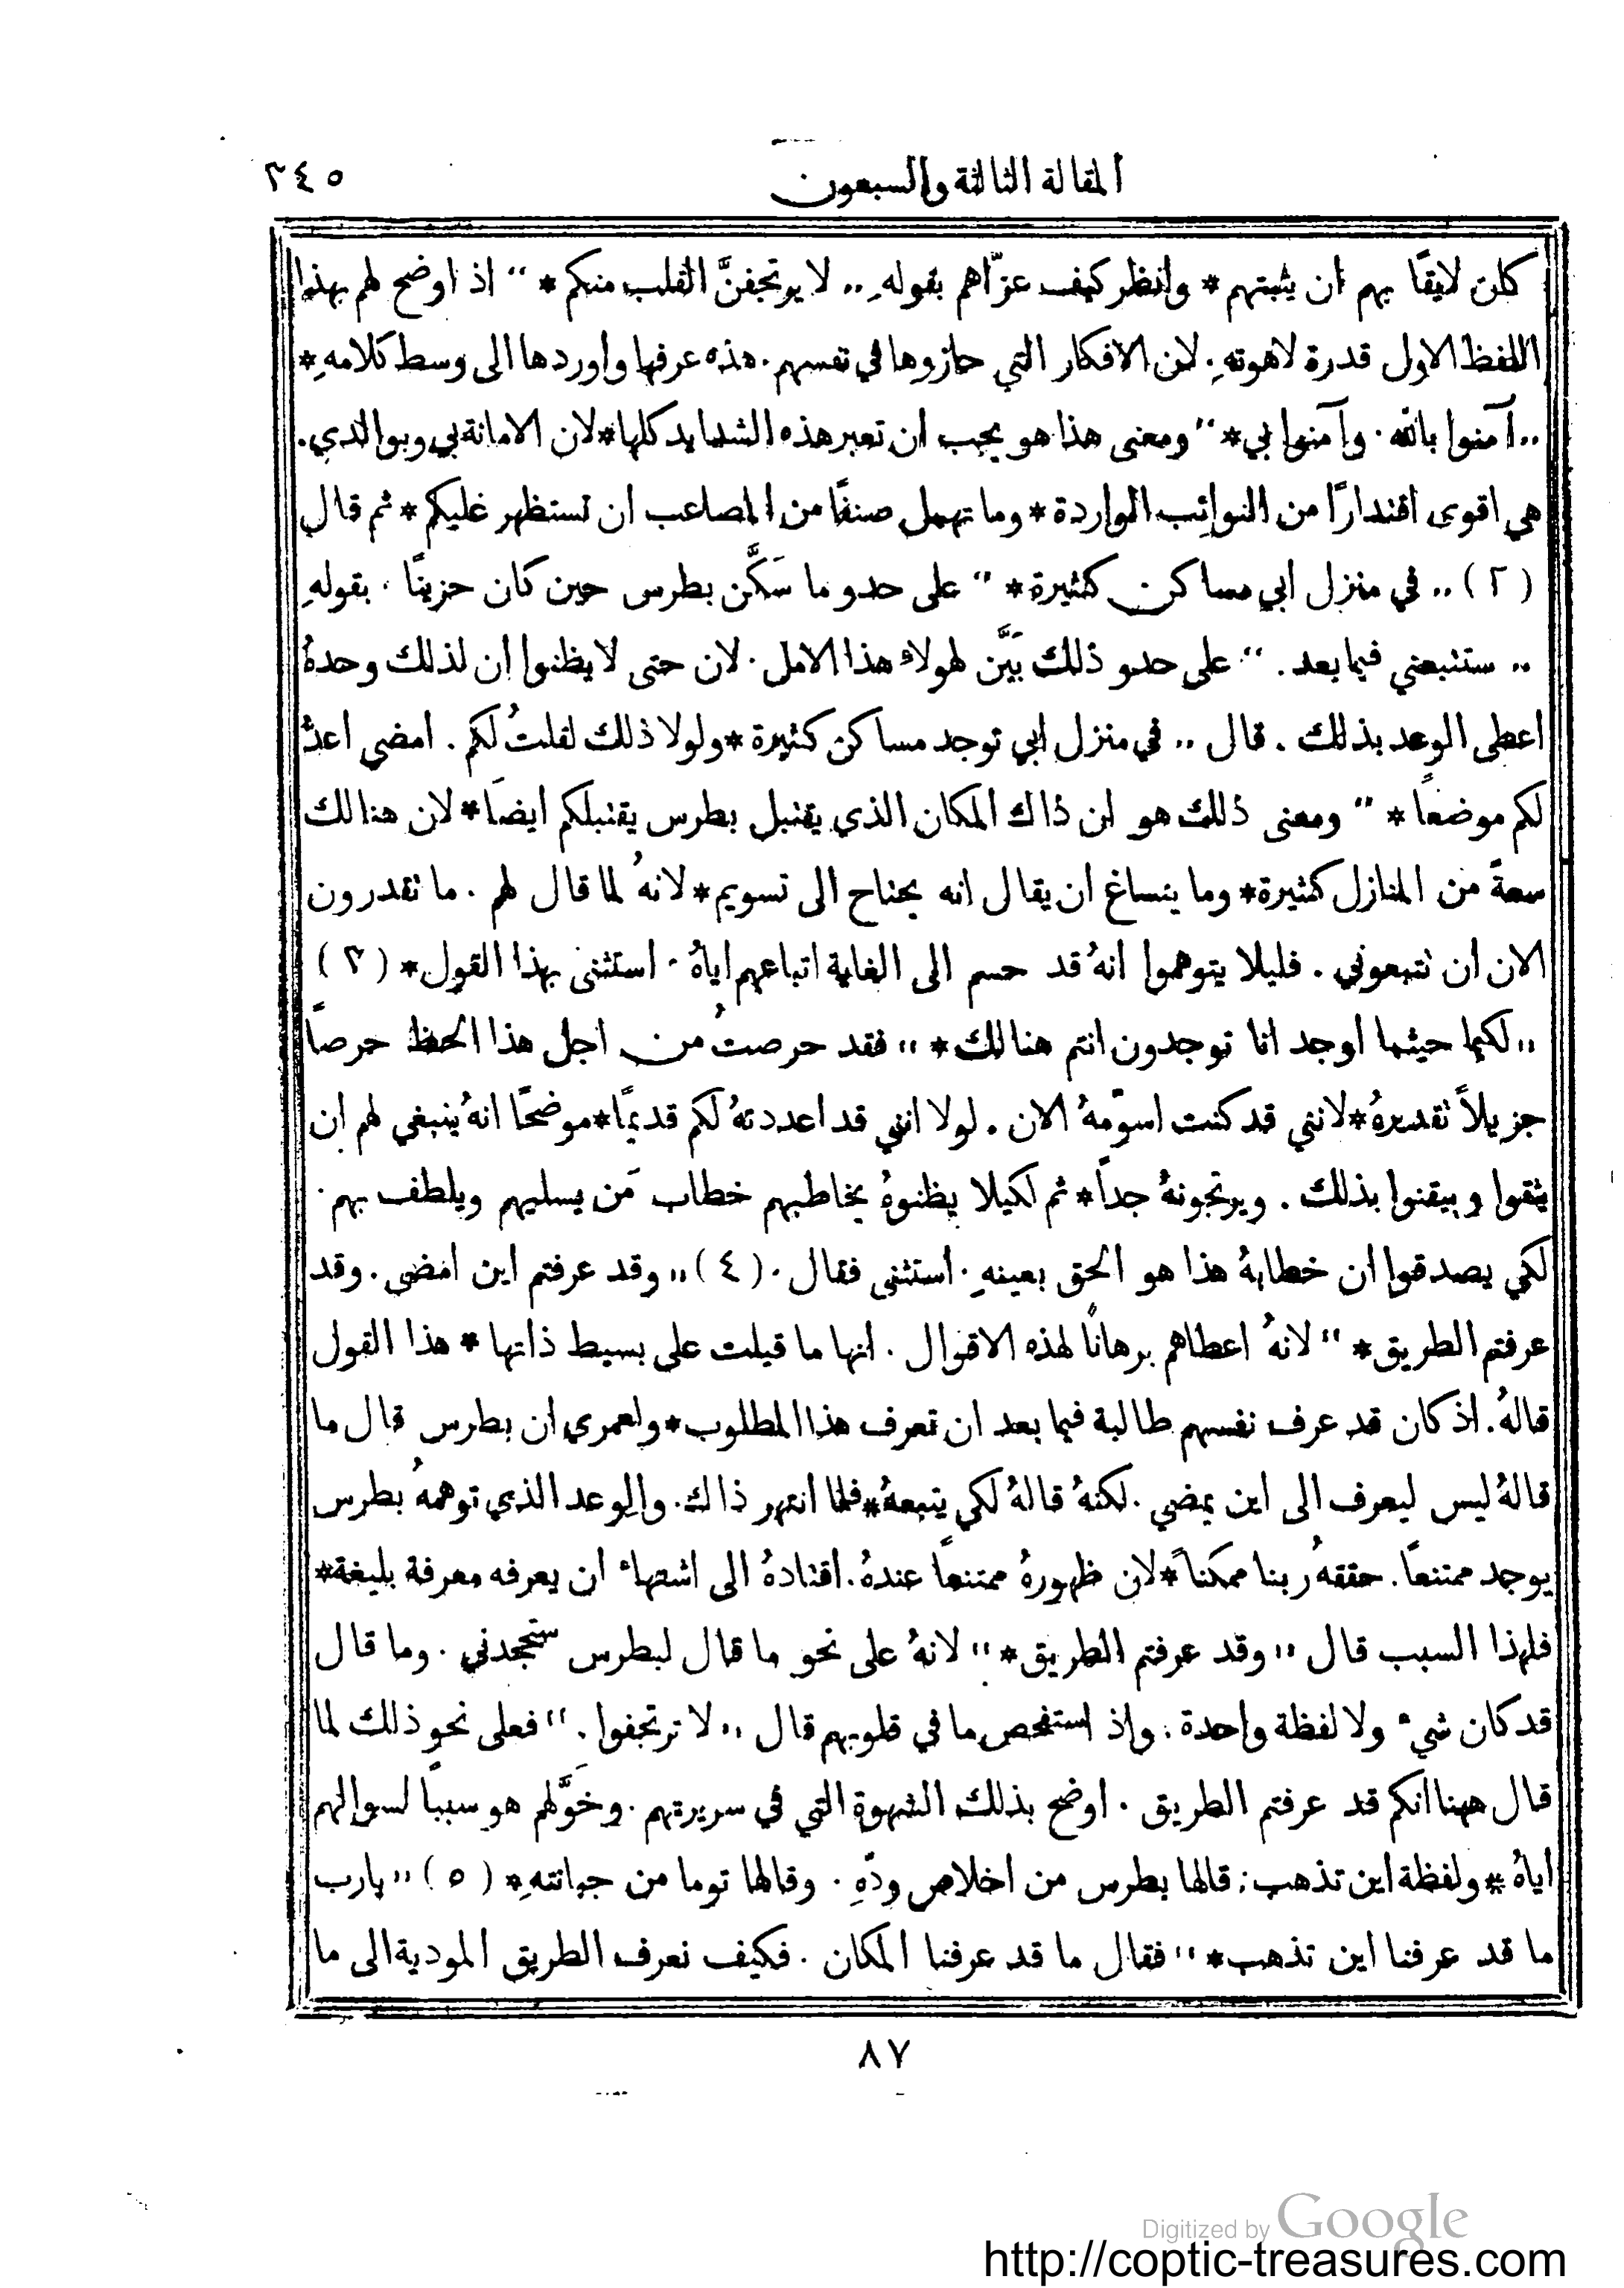 المقالة الثالثة والسبعون ٣٤٥
كان لايقًا بهم ان يثبتهم * وانظر كيف عزّاهم بقولهِ ,, لا يرتجفنَّ القلب منكم * ‘‘ اذ اوضح لهم بهذا
اللفظ الاول قدرة لاهوتهِ . لان الافكار التي حازوها في نفسهم . هذه عرفها واوردها الى وسط كلامهِ *
,, آمنوا بالله . وآمنوا بي * ‘‘ ومعنى هذا هو يجب ان تعبر هذه الشدايد كلها * لان الامانة بي وبوالدي .
هي اقوى اقتدارًا من النوائِب الواردة * وما تهمل صنفًا من المصاعب ان تستظهر عليكم * ثم قال
(٢) ,, في منزل ابي مساكن كثيرة * ‘‘ على حدو ما سَكَّن بطرس حين كان حزينًا . بقولهِ
,, ستتبعني فيما بعد . ‘‘ على حدو ذلك بَيَّن لهولاء هذا الامل . لان حتى لا يظنوا ان لذلك وحدهُ
اعطى الوعد بذلك . قال ,, في منزل ابي توجد مساكن كثيرة * ولولا ذلك لقلتُ لكم . امضي اعدُّ
لكم موضعًا * ‘‘ ومعنى ذلك هو ان ذاك المكان الذي يقتبل بطرس يقتبلكم ايضًا * لان هنالك
سعةً من المنازل كثيرة * وما ينساغ ان يقال انه يحتاج الى تسويم * لانهُ لما قال لهم . ما تقدرون
الان ان تتبعوني . فليلا يتوهموا انهُ قد حسم الى الغاية اتباعهم اياهُ . استثنى بهذا القول * (٣)
,, لكيما حيثما اوجد انا توجدون انتم هنالك * ,, فقد حرصتُ من اجل هذا الحظ حرصًا
جزيلاً تقديرهُ * لانني قد كنت اسوّمهُ الان . لولا انني قد اعددتهُ لكم قديمًا * موضحًا انهُ ينبغي لهم ان
يثقوا ويبقنوا بذلك . ويرتجونهُ جداً * ثم لكيلا يظنوهُ يخاطبهم خطاب مَن يسليهم ويلطف بهم .
لكي يصدقوا ان خطابهُ هذا هو الحق بعينهِ . استثنى فقال . (٤) ,, وقد عرفتم اين امضي . وقد
عرفتم الطريق * ‘‘ لانهُ اعطاهم برهانًا لهذه الاقوال . انها ما قيلت على بسيط ذاتها * هذا القول
قالهُ . اذ كان قد عرف نفسهم طالبة فيما بعد ان تعرف هذا المطلوب * ولعمري ان بطرس قال ما
قالهُ ليس ليعرف الى اين يمضي . لكنهُ قالهُ لكي يتبعهُ * فلما انتهر ذاك . والوعد الذي توهمهُ بطرس
يوجد ممتنعًا . حققهُ ربنا ممكناً * لان ظهورهُ ممتنعًا عندهُ . اقتادهُ الى اشتهاء ان يعرفه معرفة بليغة *
فلهذا السبب قال ,, وقد عرفتم الطريق * ,, لانهُ على نحو ما قال لبطرس ستجحدني . وما قال
قد كان شيء ولا لفظة واحدة . واذ استفحص ما في قلوبهم قال ,, لا ترتجفوا . ‘‘ فعلى نحو ذلك لما
قال ههنا انكم قد عرفتم الطريق . اوضح بذلك الشهوة التي في سريرتهم . وخَوَّلهم هو سببًا لسوالهم
اياهُ * ولفظة اين تذهب . قالها بطرس من اخلاص ودّهِ . وقالها توما من جبانتهِ * (٥) ,, يارب
ما قد عرفنا اين تذهب * ,, فقال ما قد عرفنا المكان . فكيف نعرف الطريق المودية الى ما
٨٧
Digitized by Google
http://coptic-treasures.com